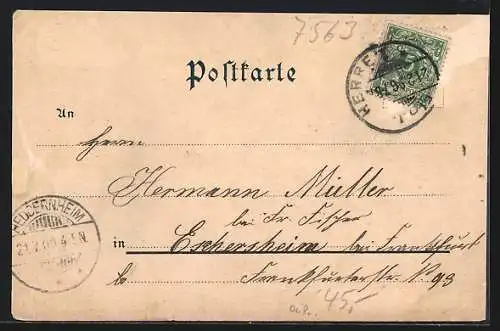 7563
Postkarte
HERRE
An
Herrn
Hermann Müller
bei Fr. Fischer
in Eschersheim bei Frankfurt
Frankfurterstr. No 98
HEDDERNHEIM
45,-